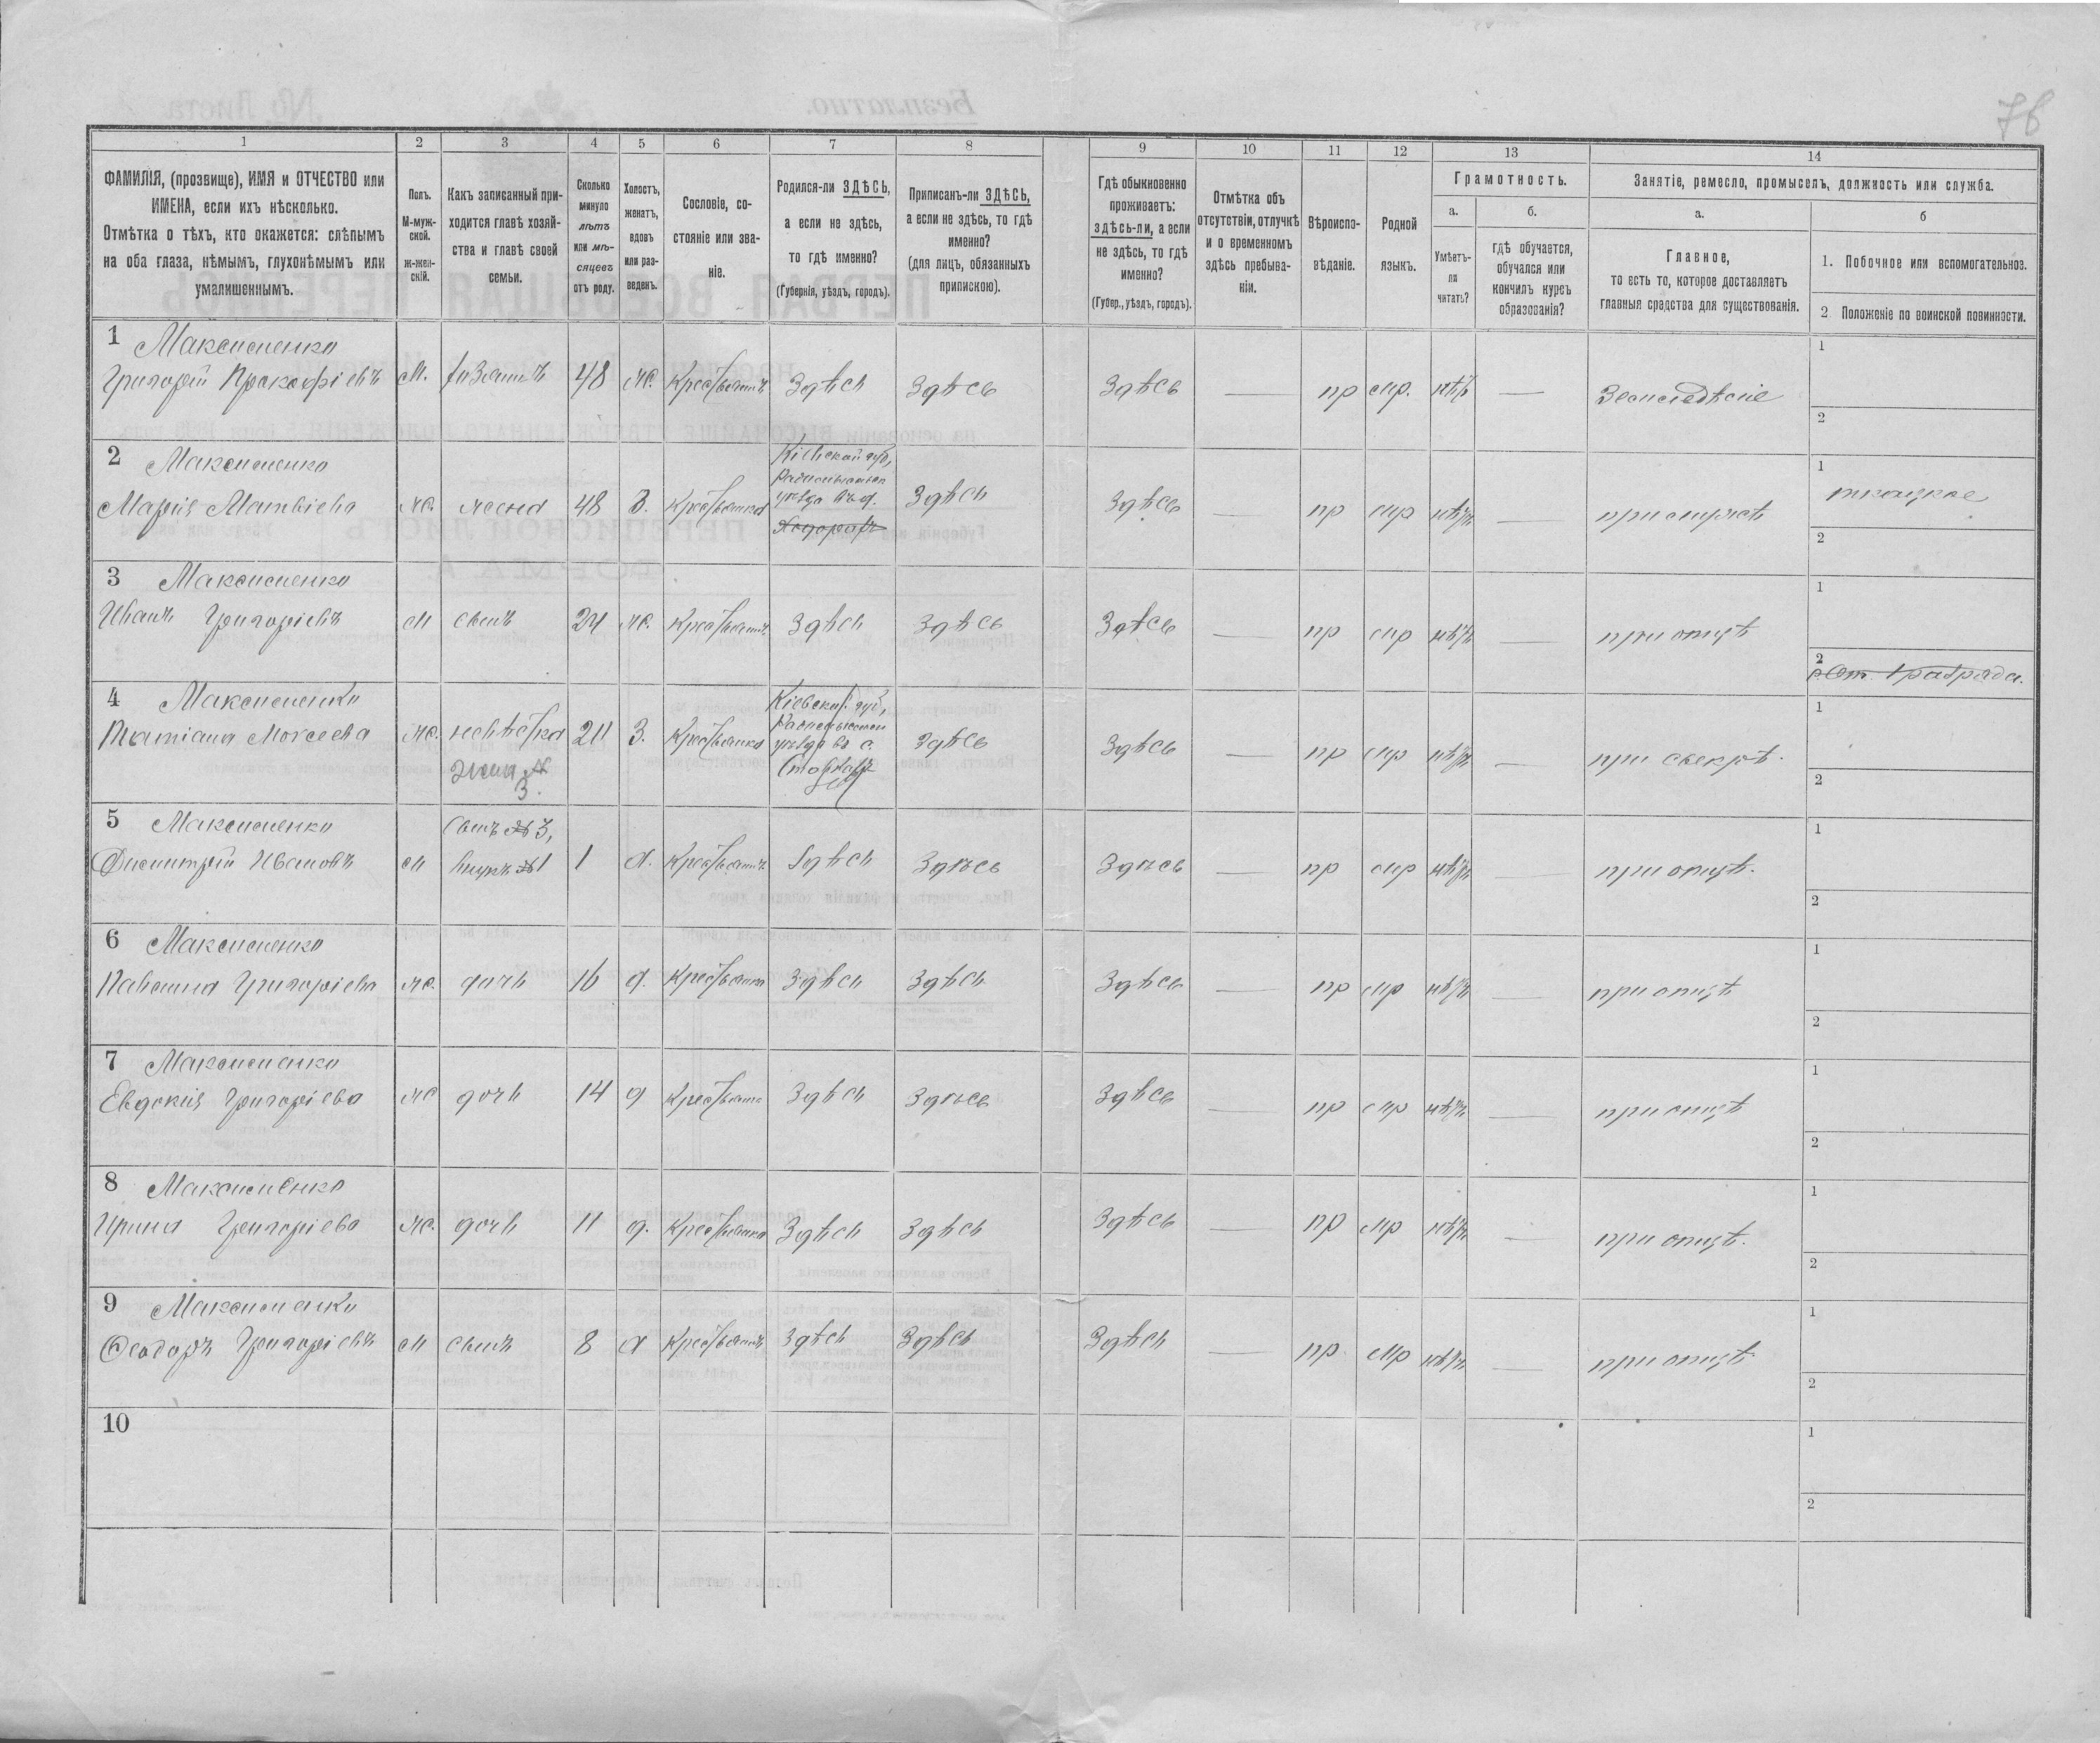 76
1 2 3 4 5 6 7 8 9 10 11 12 13 14
ФАМИЛІЯ, (прозвище), ИМЯ и ОТЧЕСТВО или
ИМЕНА, если ихъ нѣсколько.
Отмѣтка о тѣхъ, кто окажется: слѣпымъ
на оба глаза, нѣмымъ, глухонѣмымъ или
умалишеннымъ.
Полъ.
М-муж-
ской.
ж-жен-
скій.
Какъ записанный при-
ходится главѣ хозяй-
ства и главѣ своей
семьи.
Сколько
минуло
лѣтъ
или мѣ-
сяцевъ
отъ роду.
Холостъ,
женатъ,
вдовъ
или раз-
веденъ.
Сословіе, со-
стояніе или зва-
ніе.
Родился-ли ЗДѢСЬ,
а если не здѣсь,
то гдѣ именно?
(Губернія, уѣздъ, городъ).
Приписанъ-ли ЗДѢСЬ,
а если не здѣсь, то гдѣ
именно?
(для лицъ, обязанныхъ
припискою).
Гдѣ обыкновенно
проживаетъ:
здѣсь-ли, а если
не здѣсь, то гдѣ
именно?
(Губер., уѣздъ, городъ).
Отмѣтка объ
отсутствіи, отлучкѣ
и о временномъ
здѣсь пребыва-
ніи.
Вѣроиспо-
вѣданіе.
Родной
языкъ.
Грамотность.
а.
Умѣетъ-
ли
читать?
б.
гдѣ обучается,
обучался или
кончилъ курсъ
образованія?
Занятіе, ремесло, промыселъ, должность или служба.
а.
Главное,
то есть то, которое доставляетъ
главныя средства для существованія.
б
1. Побочное или вспомогательное.
2 Положеніе по воинской повинности.
1 Максименко
Григорій Прокофіевъ М. хозяинъ 48 ж. Крестьянинъ Здѣсь Здѣсь Здѣсь — пр мр. нѣтъ — Земледѣліе
1
2
2 Максименко
Марія Матвіева ж. жена 48 З. Крестьянка
Кіевской губ,
уѣзда въ
Здѣсь Здѣсь — пр мр нѣтъ при мужѣ
1 ткацкое
2
3 Максименко
Иванъ Григоріевъ м сынъ 24 ж. Крестьянинъ Здѣсь Здѣсь Здѣсь — пр мр нѣтъ — при отцѣ
1
2
4 Максименко
Татіана Моисеева ж. невѣстка
жена №
3.
21 З. Крестьянка
Кіевской губ,
уѣзда въ с.
Здѣсь Здѣсь — пр мр нѣтъ при свекрѣ.
1
2
5 Максименко
Димитрій Ивановъ м
Сынъ № 3,
внукъ №1
1 х. Крестьянинъ Здѣсь Здѣсь Здѣсь — пр мр нѣтъ — при отцѣ.
1
2
6 Максименко
Григоріева ж. дочь 16 д. Крестьянка Здѣсь Здѣсь Здѣсь — пр мр нѣтъ — при отцѣ
1
2
7 Максименко
Евдокія Григоріева ж дочь 14 д Крестьянка Здѣсь Здѣсь Здѣсь — пр мр нѣтъ — при отцѣ
1
2
8 Максименко
Ирина Григоріева ж. дочь 11 д. Крестьянка Здѣсь Здѣсь Здѣсь — пр мр нѣтъ — при отцѣ.
1
2
9 Максименко
Ѳеодоръ Григоріевъ м сынъ 8 х Крестьянинъ Здѣсь Здѣсь Здѣсь — пр мр нѣтъ — при отцѣ.
1
2
10
1
2